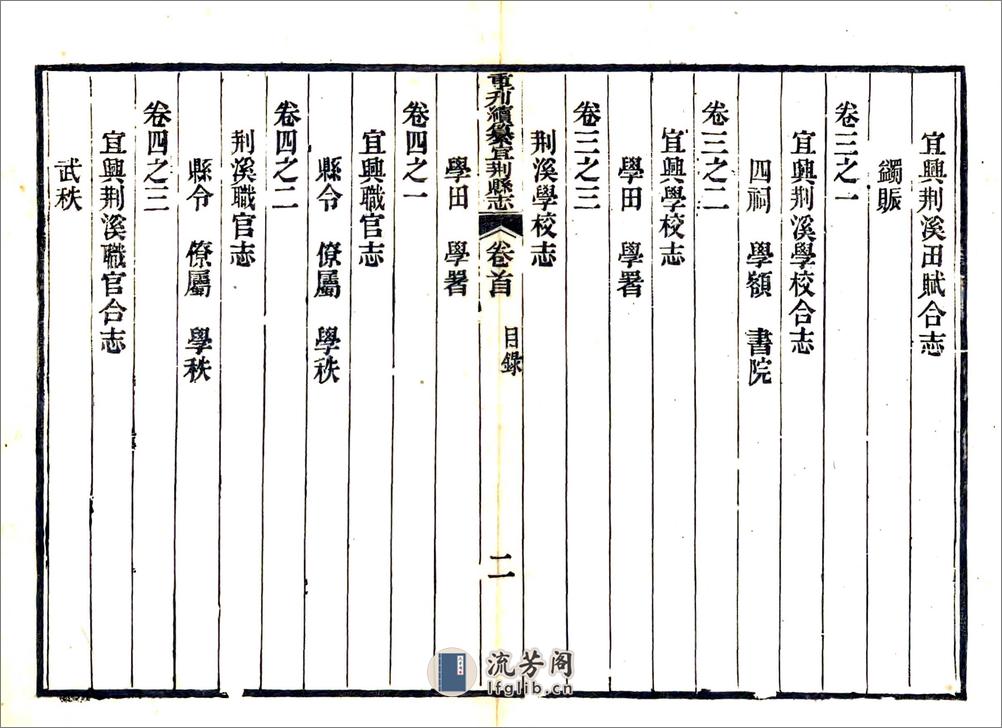 宜興荆溪田賦合志
蠲賑
卷三之一
宜興荆溪學校合志
四祠 學額 書院
卷三之二
宜興學校志
學田 學署
卷三之三
荆溪學校志
重刋續纂宜荆縣志 卷首 目錄 二
學田 學署
卷四之一
宜興職官志
縣令 僚屬 學秩
卷四之二
荆溪職官志
縣令 僚屬 學秩
卷四之三
宜興荆溪職官合志
武秩
流芳阁
lfglib.cn